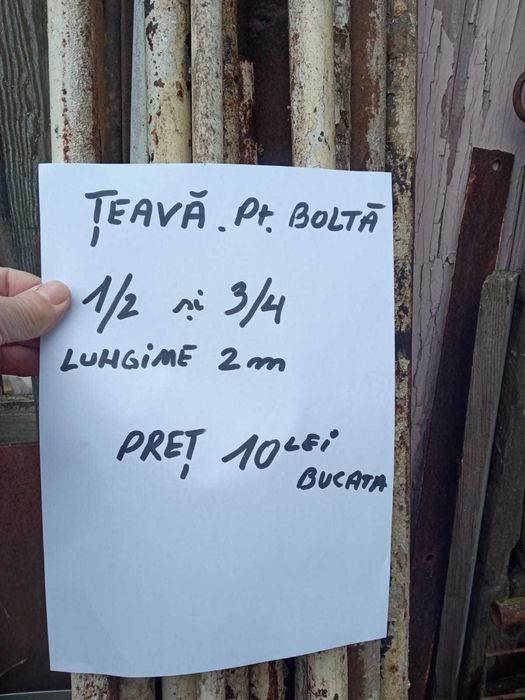 ȚEAVĂ. Pt. BOLTĂ
1/2 și 3/4
LUNGIME 2m
PREȚ 10 LEI
BUCATA